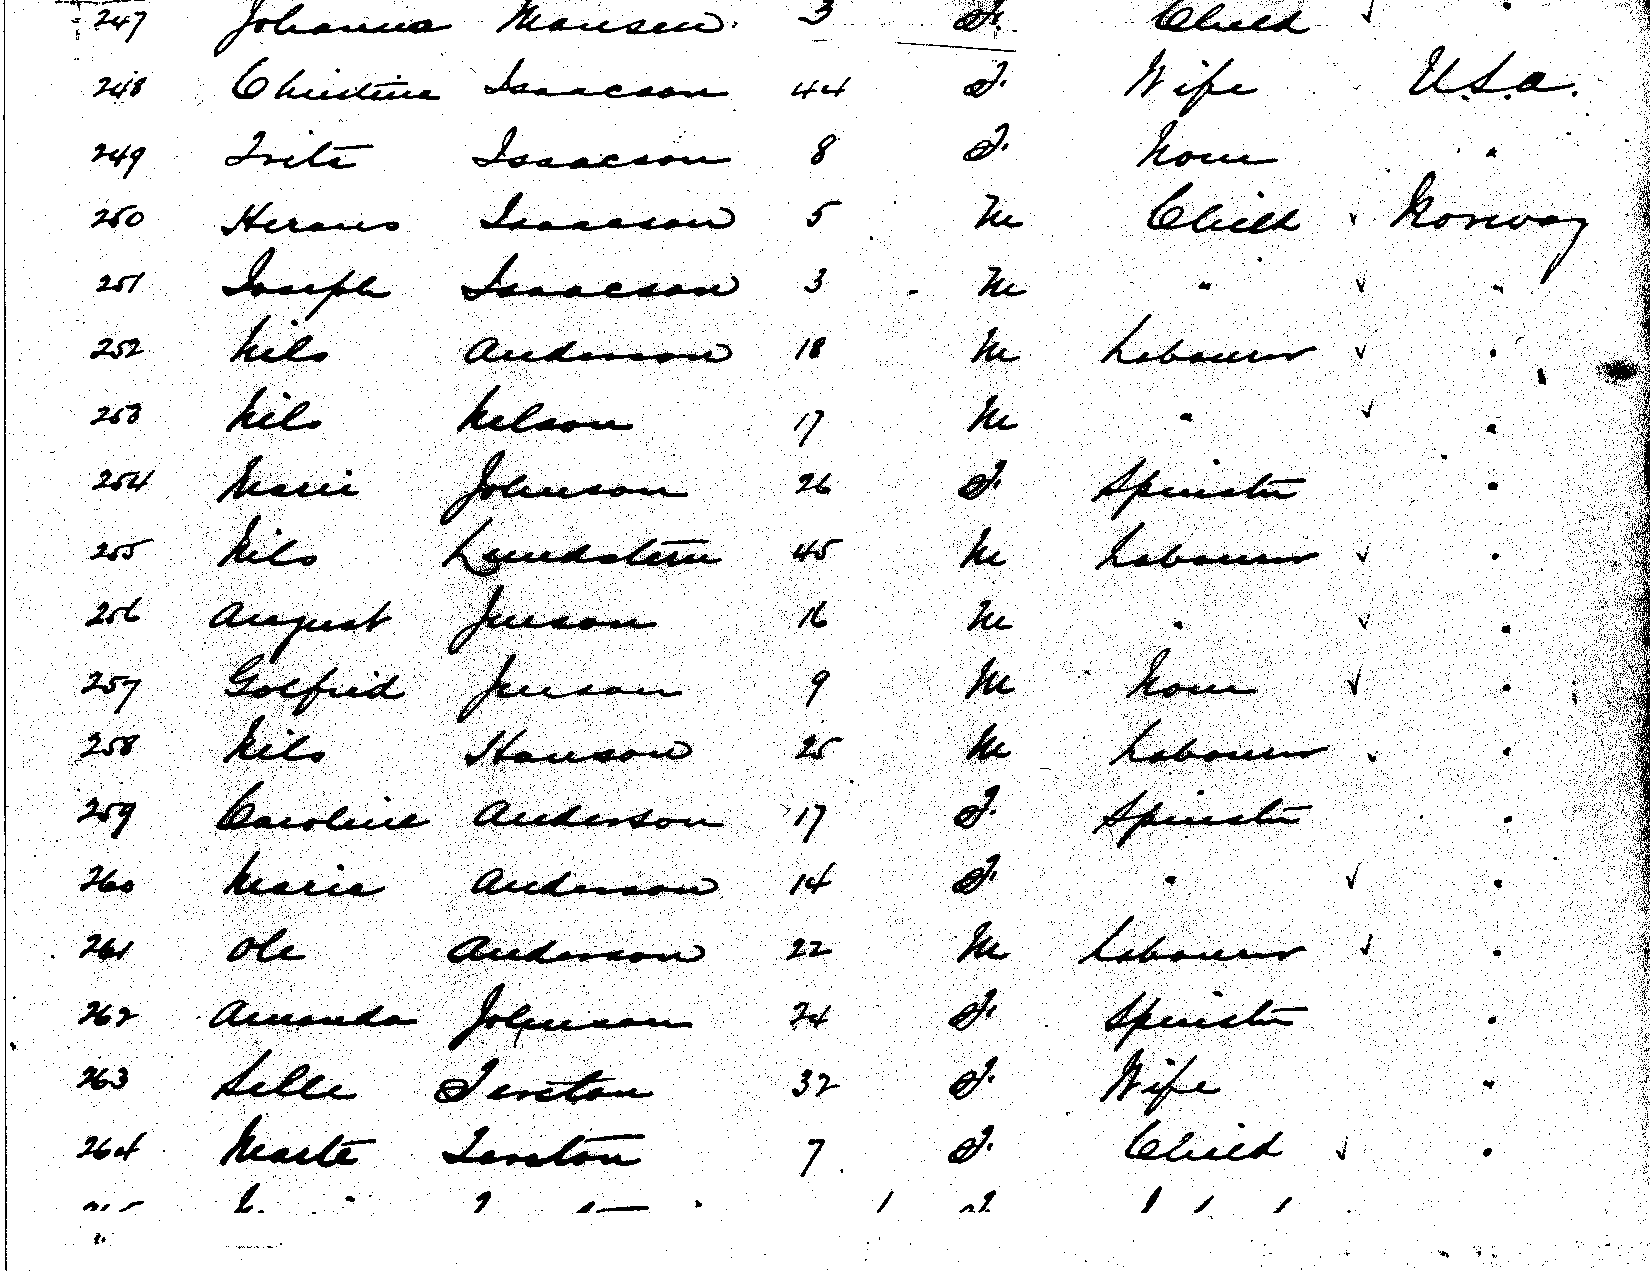 247 Johanna Mansen. 3 F. Child ✓ "
248 Christine Isaacson 44 F. Wife U.S.a.
249 Isaacson 8 F. None "
250 Isaacson 5 M Child Norway
251 Joseph Isaacson 3 M " ✓ "
252 Nils Anderson 18 M Labourer ✓ "
253 Nils Nelson 17 M " ✓ "
254 Marie Johnson 26 F. Spinster "
255 Nils 45 M Labourer ✓ "
256 August Jenson 16 M " ✓ "
257 Golfried Jenson 9 M None ✓ "
258 Nils Hanson 25 M Labourer ✓ "
259 Caroline Anderson 17 F. Spinster "
260 Maria Anderson 14 F. " ✓ "
261 Ole Anderson 22 M Labourer ✓ "
262 Amanda Johnson 24 F. Spinster "
263 32 F. Wife "
264 7 F. Child ✓ "